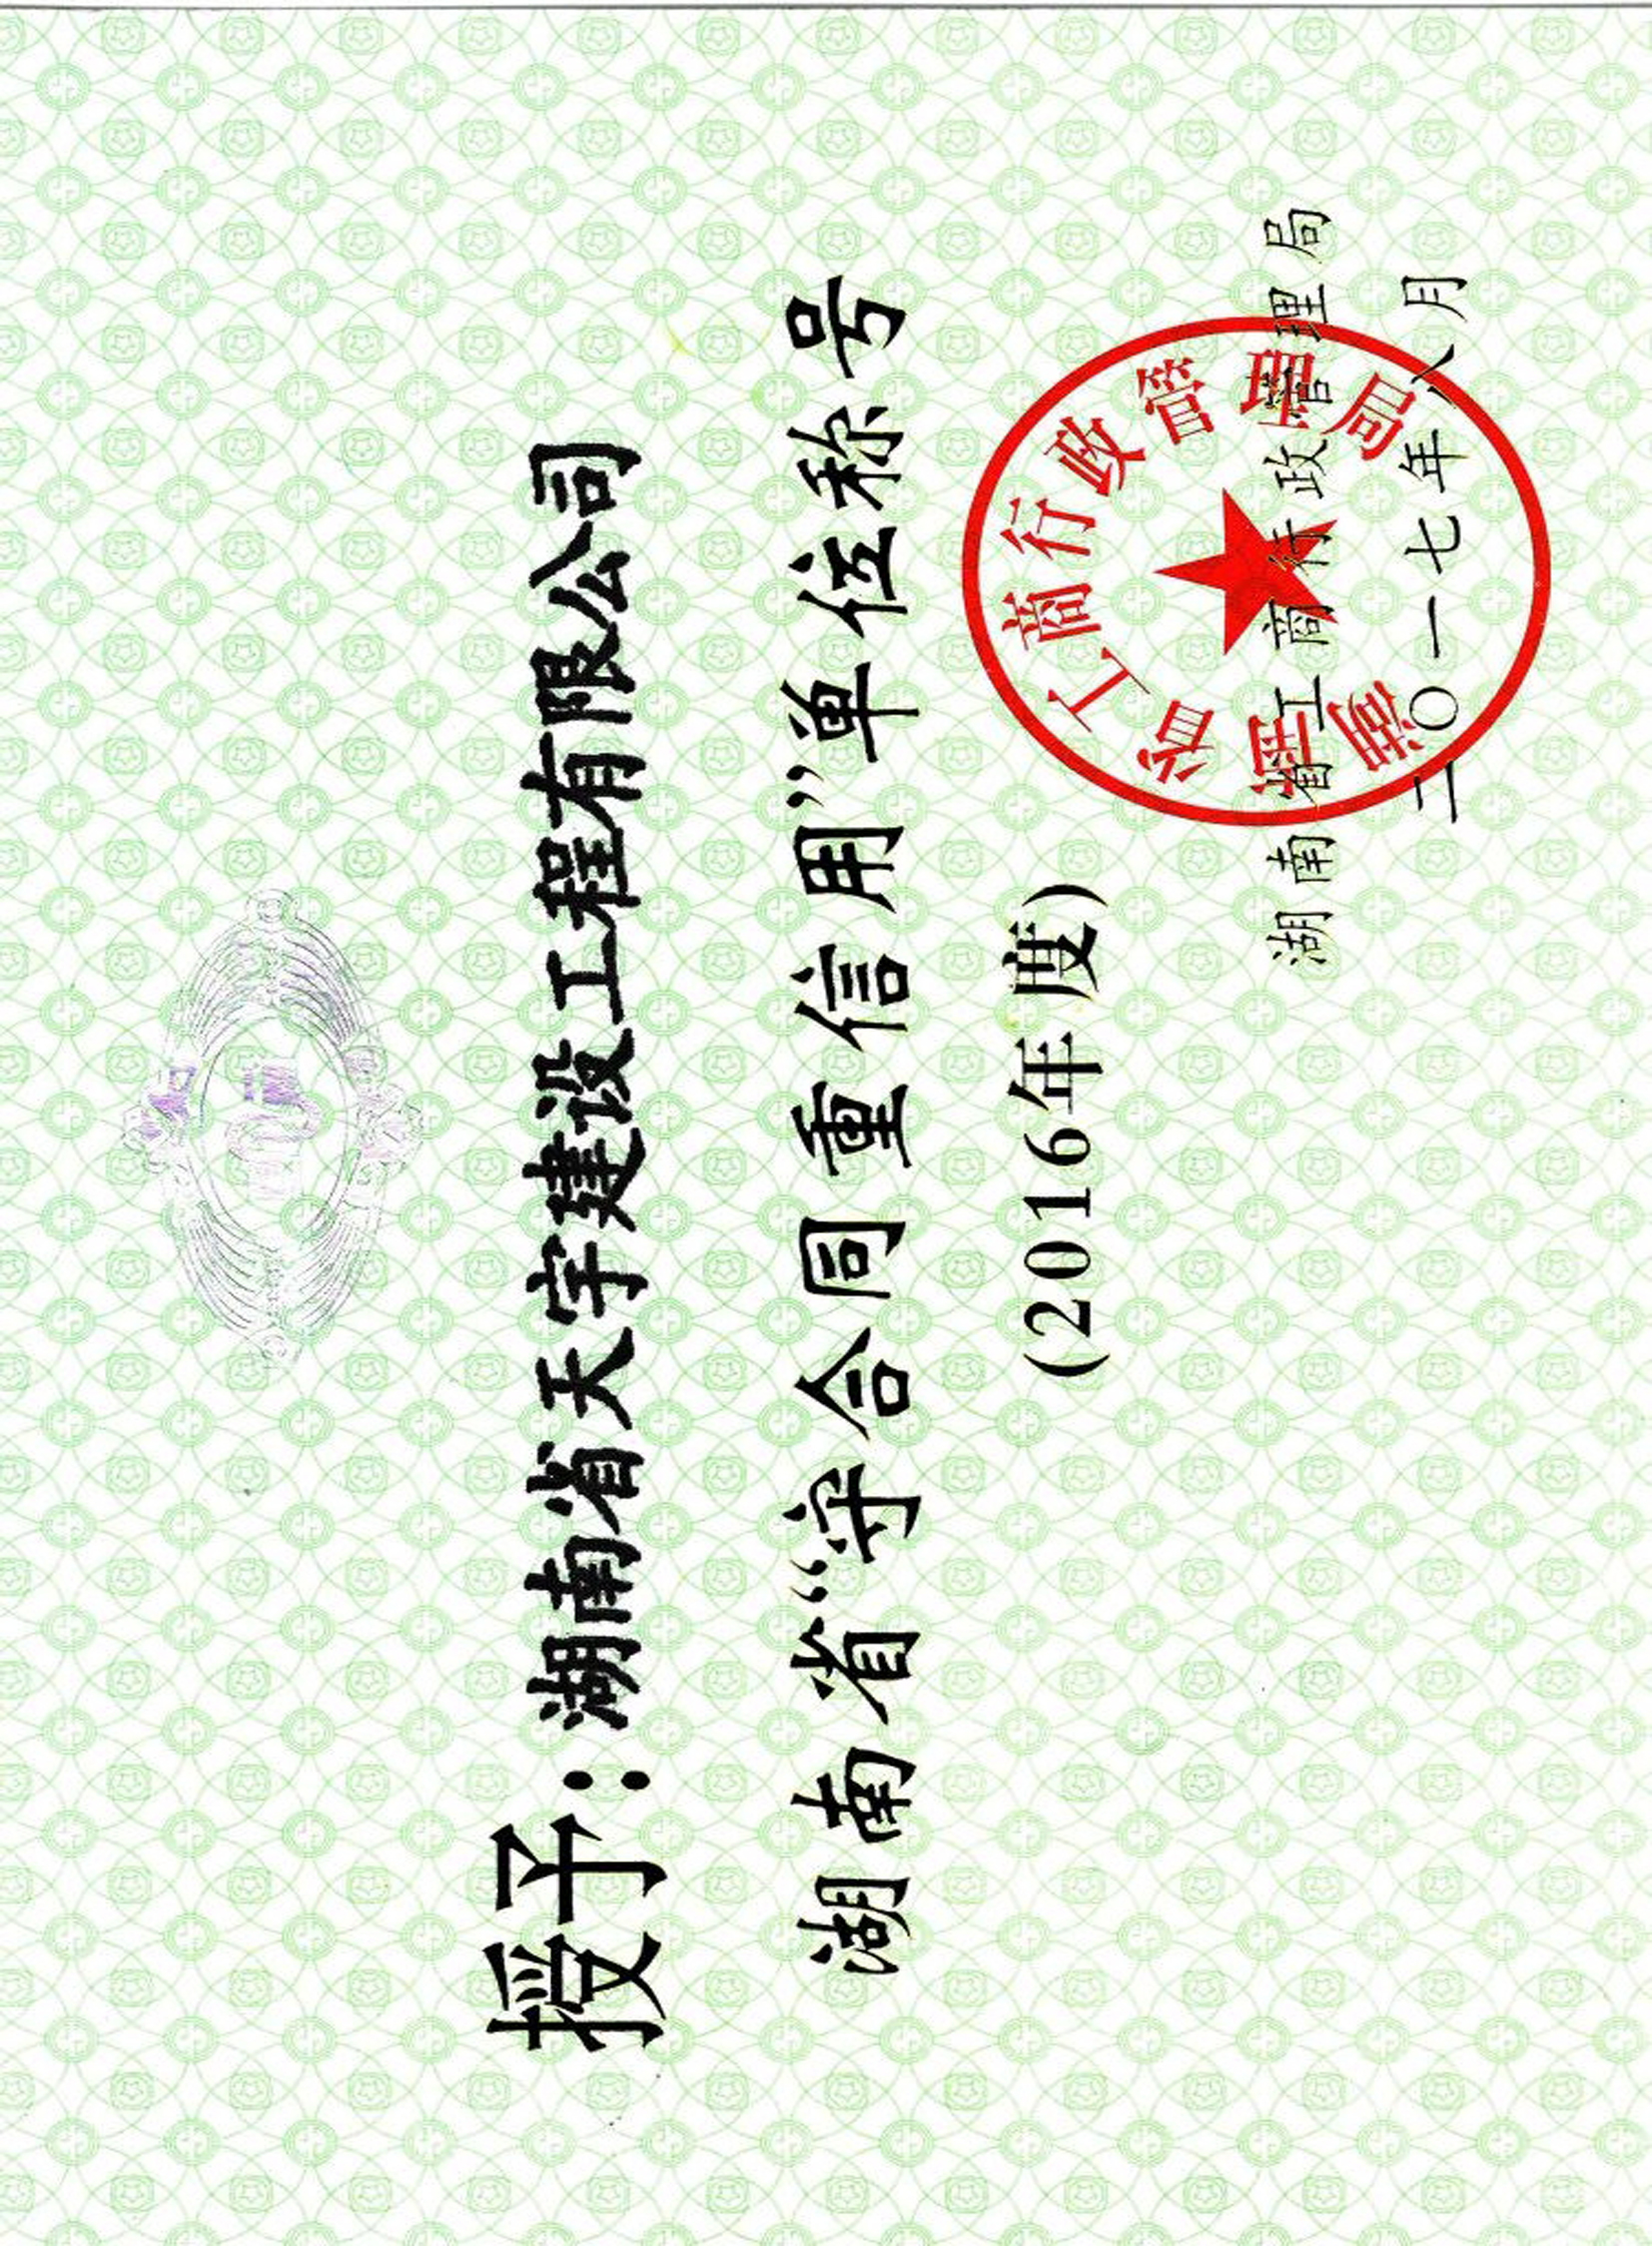 授予：湖南省天宇建设工程有限公司
湖南省“守合同重信用”单位称号
(2016年度)
湖南省工商行政管理局
湖南省工商行政管理局
二〇一七年八月